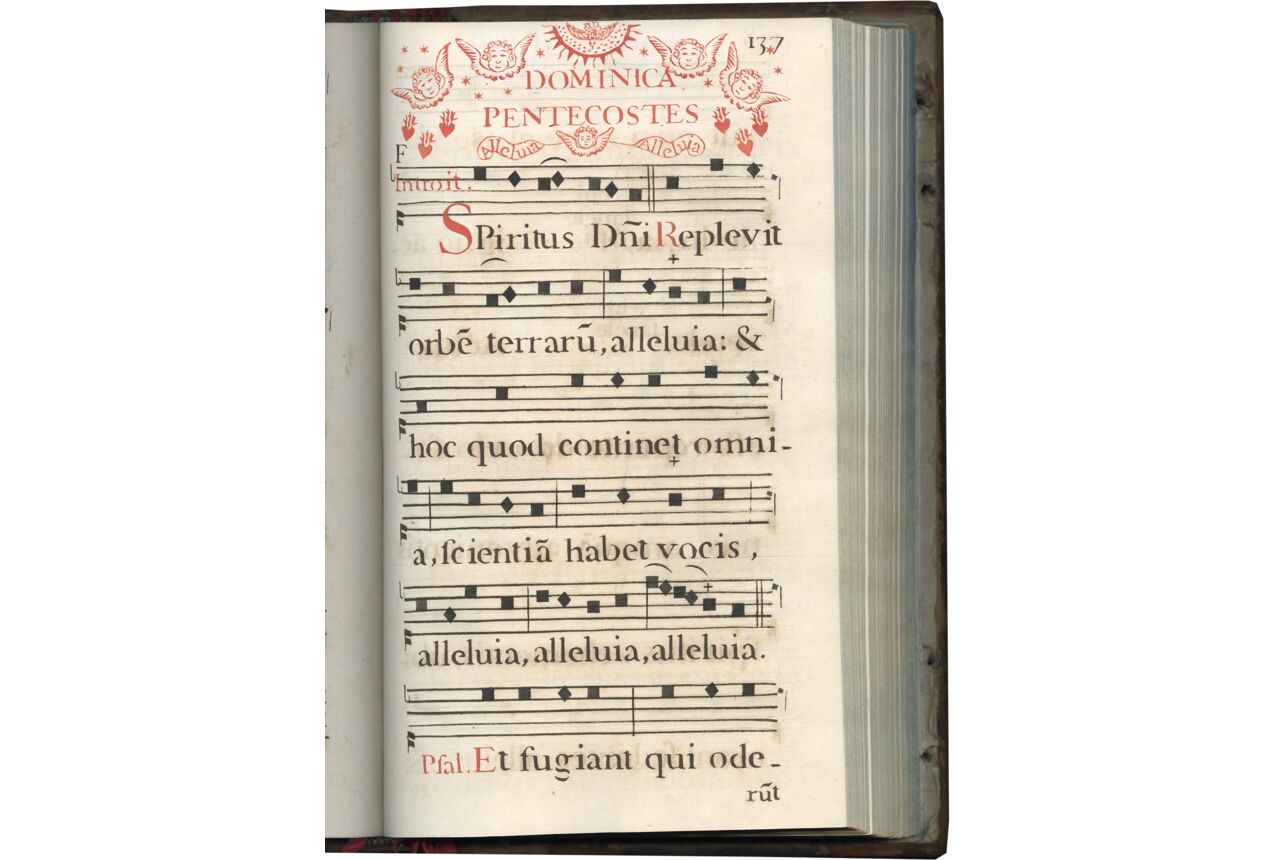 137
DOMINICA
PENTECOSTES
Alleluia Alleluia
F
Introit.
SPiritus Dn̄i Replevit
orbē terrarū, alleluia: &
hoc quod continet omni-
a, ſcientiā habet vocis,
alleluia, alleluia, alleluia.
Pſal. Et fugiant qui ode-
rūt